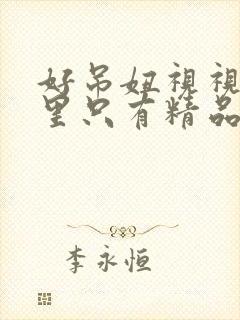 好吊妞视视
里只有精品
李永恒